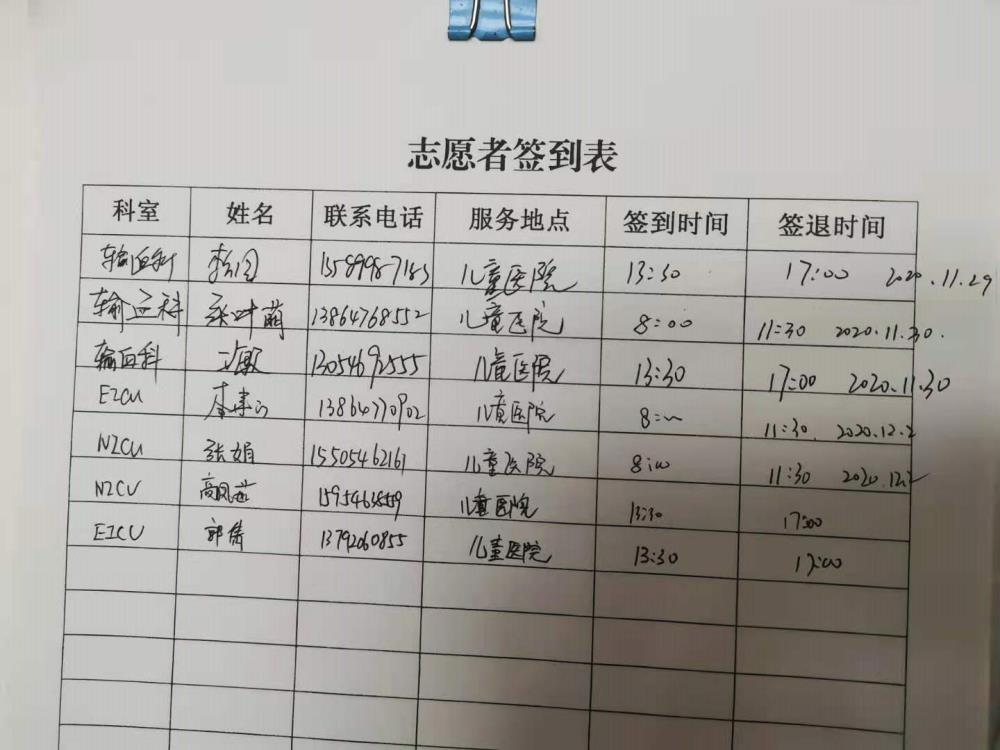 志愿者签到表
科室 姓名 联系电话 服务地点 签到时间 签退时间
输血科 15589987183 儿童医院 13:30 17:00 2020.11.29
输血科 张叶萌 13864768552 儿童医院 8:00 11:30 2020.11.30.
输血科 13054692555 儿童医院 13:30 17:00 2020.11.30
EICU 13864770902 儿童医院 8:00 11:30. 2020.12.2
NICU 张娟 15505462161 儿童医院 8:00 11:30 2020.12.2
NICU 高凤燕 儿童医院 13:30 17:00
EICU 郭倩 13792060855 儿童医院 13:30 17:00